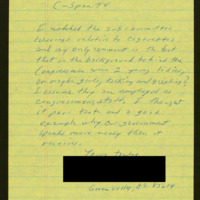 C-Span TV
I watched the subcommittee
hearings relative to
and my only comment is the fact
that in the background behind the
Congressman were 2 young ladies,
or maybe girls, talking and giggling!
I assume they are employed as
congressional staff. I thought
it poor taste and a good
example why our government
spends more money than it
receives.
Yours truly,
Green Valley, AZ. 85614